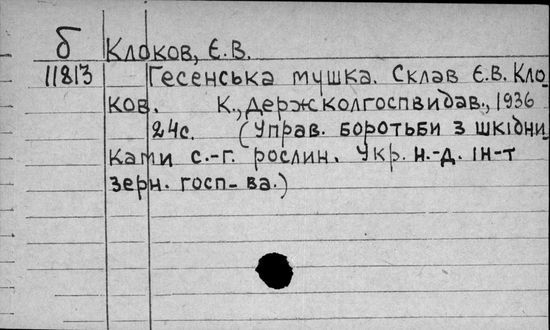 б Клоков, Є.В.
11813 Гесенська мушка. Склав Є.В. Кло-
ков. К., Держколгоспвидав., 1936
24с. (Управ. боротьби з шкідни-
ками с.-г. рослин. Укр. н.-д. ін-т
зерн. госп-ва.)